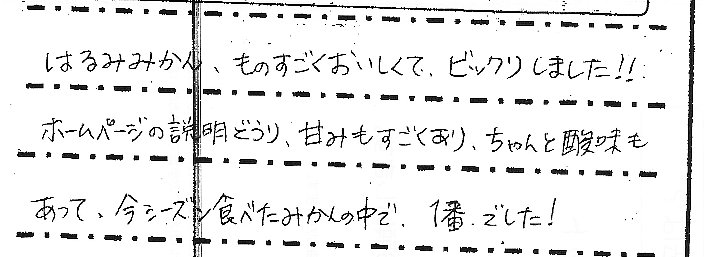 はるみみかん、ものすごくおいしくて、ビックリしました!!
ホームページの説明どうり、甘みもすごくあり、ちゃんと酸味も
あって、今シーズン食べたみかんの中で、1番でした!